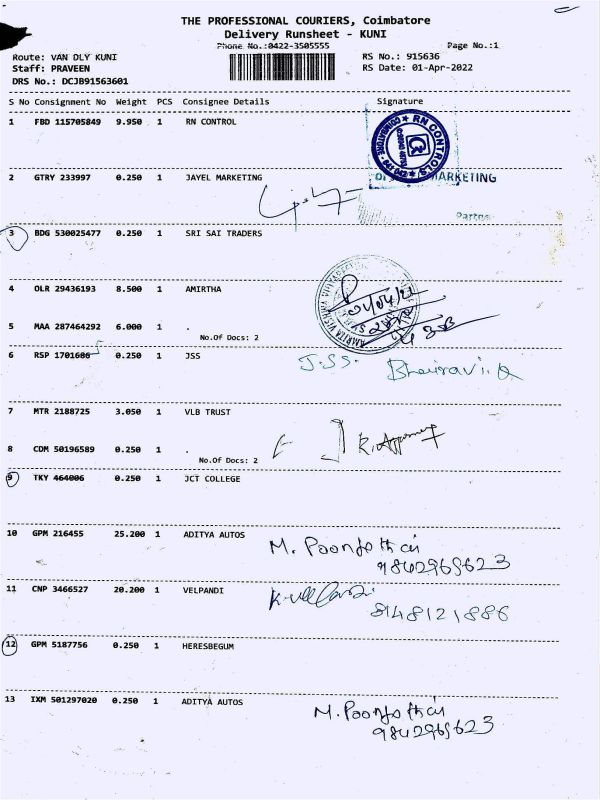 THE PROFESSIONAL COURIERS, Coimbatore
Delivery Runsheet - KUNI
Phone No.:0422-3505555 Page No.:1
Route: VAN DLY KUNI RS No.: 915636
Staff: PRAVEEN RS Date: 01-Apr-2022
DRS No.: DCJB91563601
S No Consignment No Weight PCS Consignee Details Signature
1 FBD 115705849 9.950 1 RN CONTROL
RN CONTROLS
2 GTRY 233997 0.250 1 JAYEL MARKETING
MARKETING
Partner
3 BDG 530025477 0.250 1 SRI SAI TRADERS
4 OLR 29436193 8.500 1 AMIRTHA
01/04/22
5 MAA 287464292 6.000 1 .
No.Of Docs: 2
6 RSP 1701686 0.250 1 JSS
J.SS. Bhairavi.Q
7 MTR 2188725 3.050 1 VLB TRUST
8 CDM 50196589 0.250 1 .
No.Of Docs: 2
9 TKY 464006 0.250 1 JCT COLLEGE
10 GPM 216455 25.200 1 ADITYA AUTOS
M. Poongothai
9842969623
11 CNP 3466527 20.200 1 VELPANDI
8148121886
12 GPM 5187756 0.250 1 HERESBEGUM
13 IXM 501297020 0.250 1 ADITYA AUTOS
M. Poongothai
9842969623